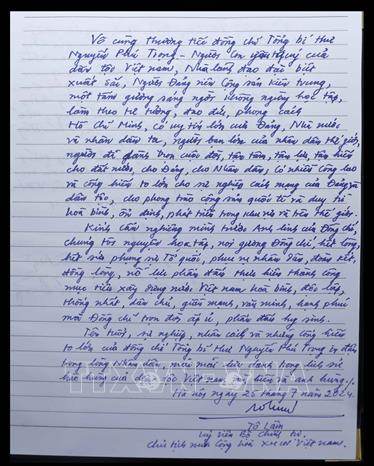 Vô cùng thương tiếc đồng chí Tổng Bí thư
Nguyễn Phú Trọng - Người con ưu tú của
dân tộc Việt Nam, Nhà lãnh đạo đặc biệt
xuất sắc, Người Đảng viên Cộng sản kiên trung,
một tấm gương sáng ngời không ngừng học tập,
làm theo tư tưởng, đạo đức, phong cách
Hồ Chí Minh, có uy tín lớn của Đảng, Nhà nước
và nhân dân ta, người bạn lớn của nhân dân thế giới,
người đã dành trọn cuộc đời, tâm lực, tận hiến
cho đất nước, cho Đảng, cho Nhân dân, có nhiều công lao
và cống hiến to lớn cho sự nghiệp cách mạng của Đảng và
dân tộc, cho phong trào cộng sản quốc tế và duy trì
hoà bình, ổn định, phát triển trong khu vực và trên thế giới.
Kính cẩn nghiêng mình trước Anh linh của Đồng chí,
chúng tôi nguyện học tập, noi gương Đồng chí, hết lòng,
hết sức phụng sự Tổ quốc, phục vụ nhân dân, đoàn kết,
đồng lòng, nỗ lực phấn đấu thực hiện thành công
mục tiêu xây dựng nước Việt Nam hoà bình, độc lập,
thống nhất, dân chủ, giàu mạnh, văn minh, hạnh phúc
mà Đồng chí trọn đời phấn đấu hy sinh.
Tên tuổi, sự nghiệp, nhân cách và những cống hiến
to lớn của đồng chí Tổng Bí thư Nguyễn Phú Trọng
trong lòng Nhân dân, mãi mãi lưu danh trong lịch sử
hào hùng của dân tộc Việt Nam văn hiến và anh hùng!
Hà Nội ngày 25 tháng 7 năm 2024
Tô Lâm
Uỷ viên Bộ Chính trị,
Chủ tịch nước Cộng hoà XHCN Việt Nam.